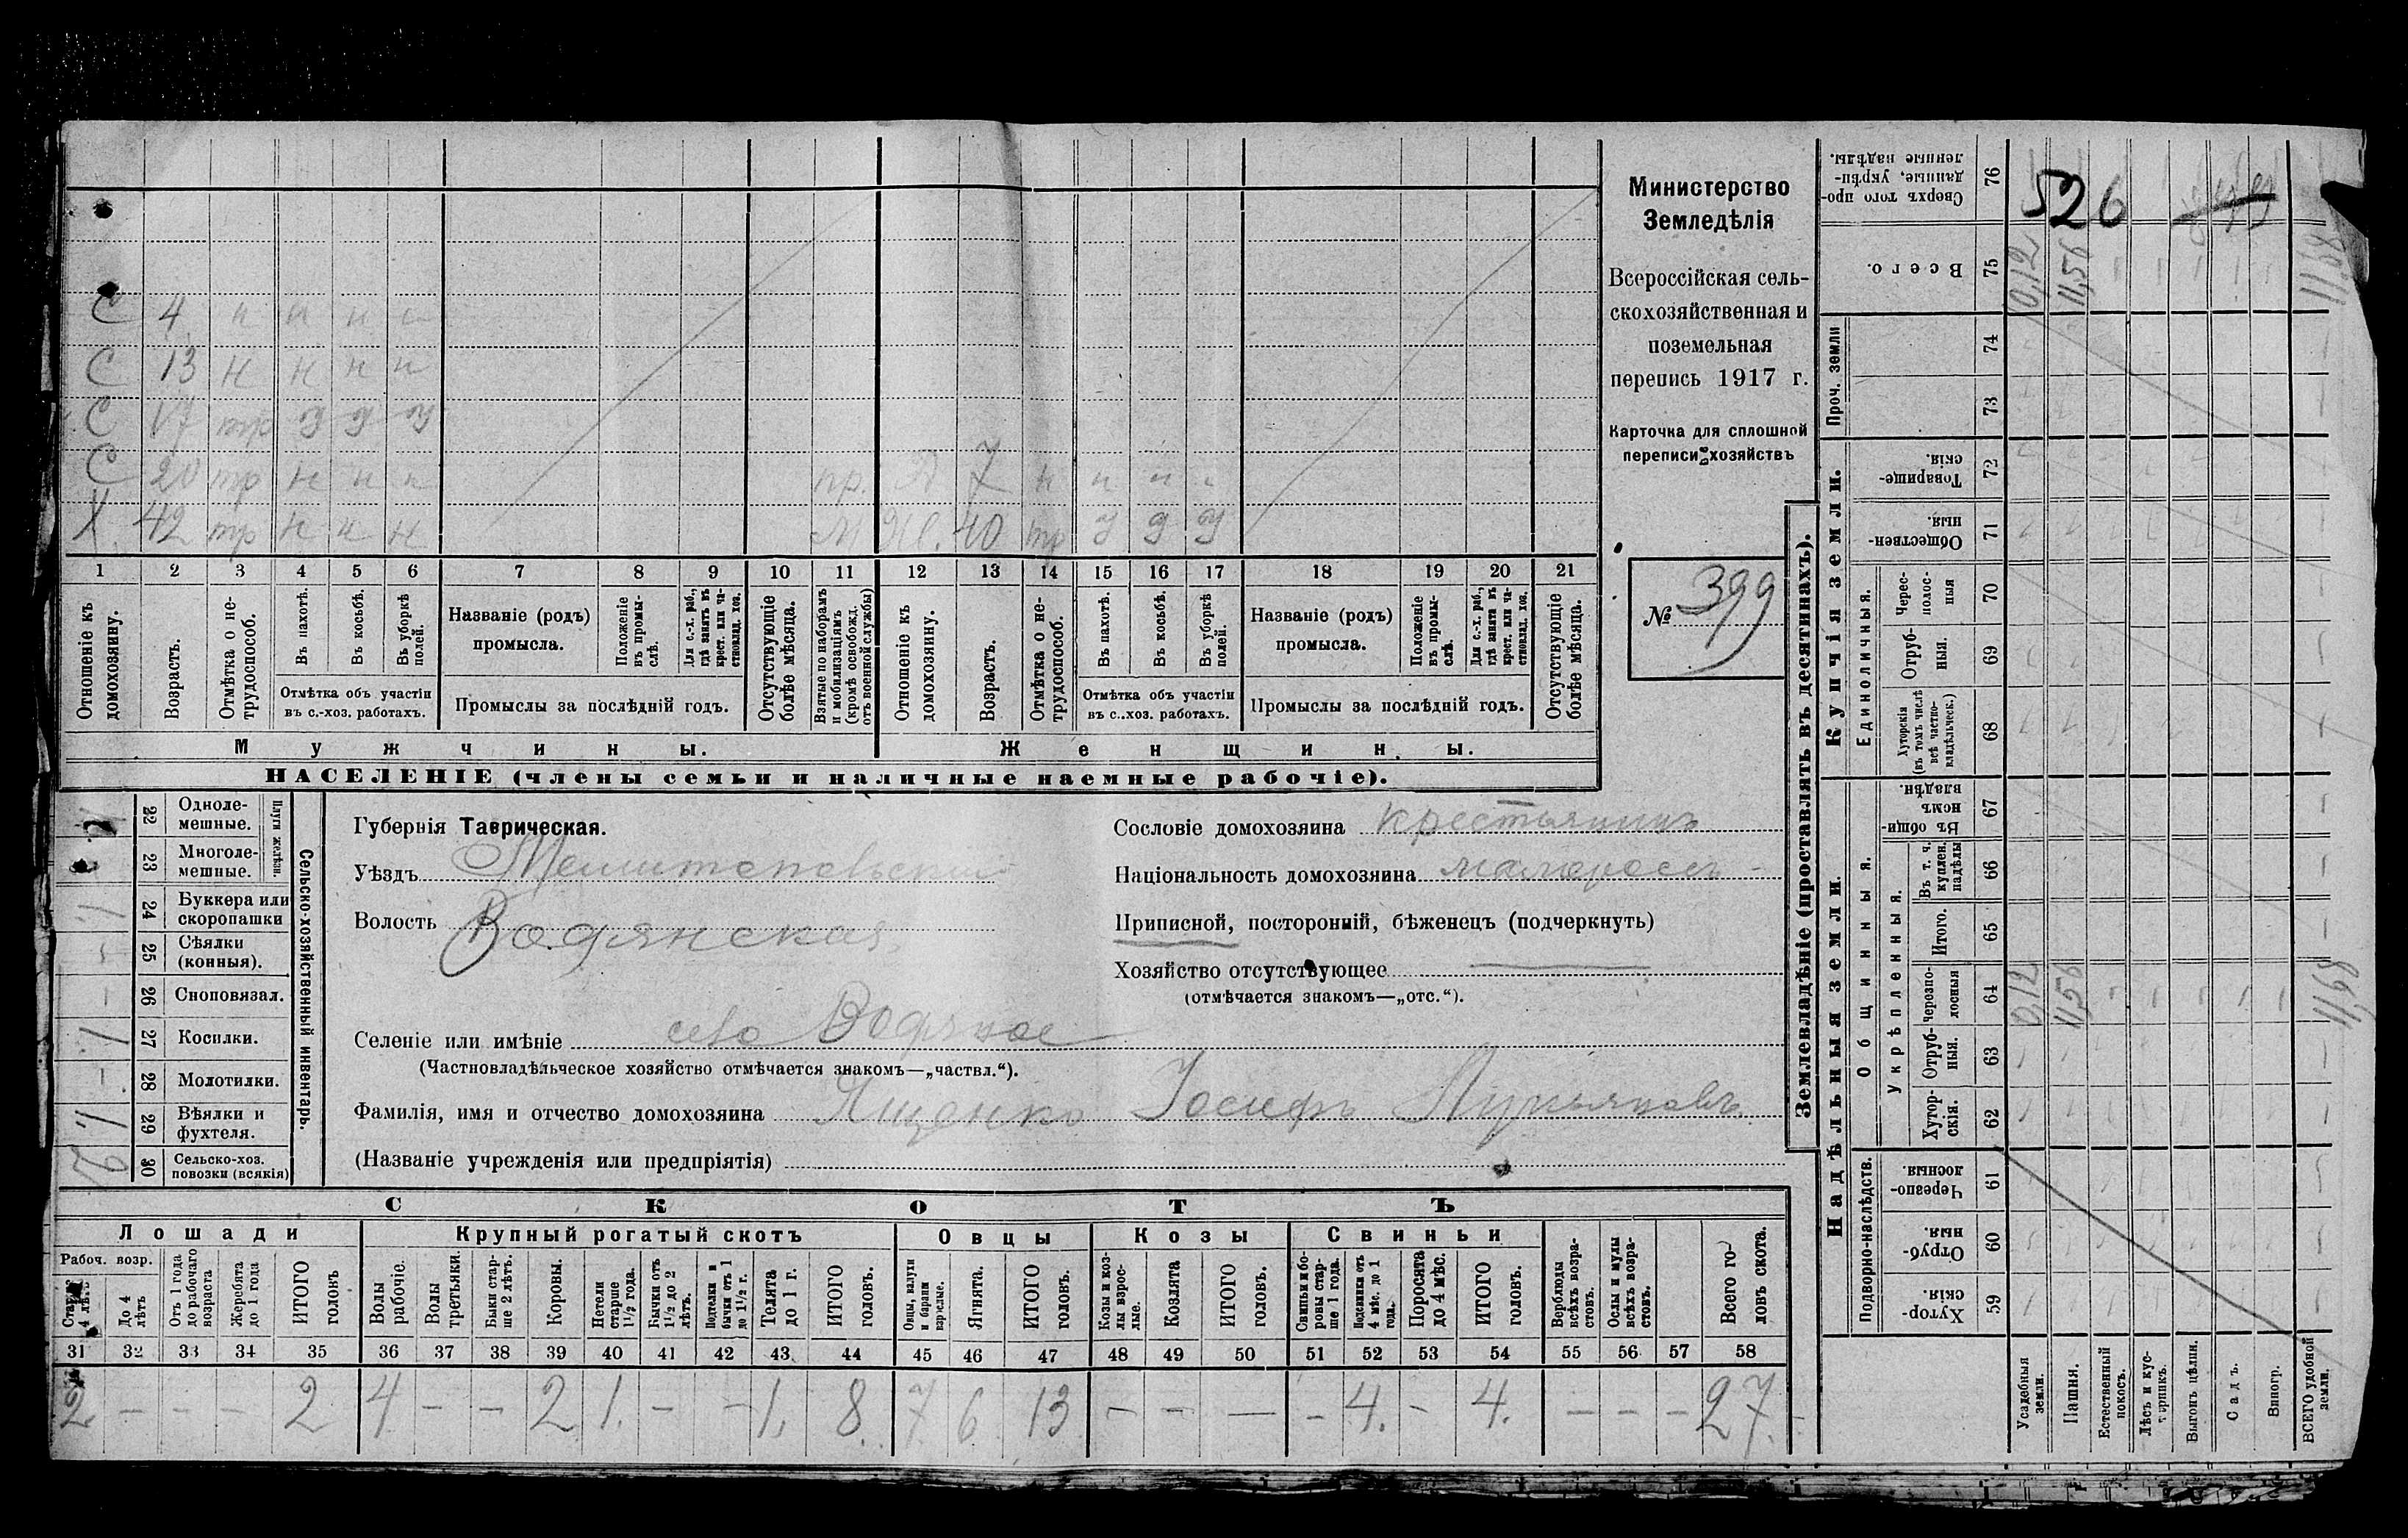 С 4 н н н н
С 13 н н н н
С 17 тр у у у
С 20 тр н н н пр. Д 7 н н н н
Х. 42 тр н н н М Ж. 40 тр у у у
1 2 3 4 5 6 7 8 9 10 11 12 13 14 15 16 17 18 19 20 21
Отношеніе къ домохозяину.
Возрастъ.
Отмѣтка о не-трудоспособ.
Въ пахотѣ.
Въ косьбѣ.
Въ уборкѣ полей.
Отмѣтка объ участіи
въ с.-хоз. работахъ.
Названіе (родъ)
промысла.
Положеніе въ промы-слѣ.
Для с.-х. раб., гдѣ занятъ въ крест. или ча-стновлад. хоз.
Промыслы за послѣдній годъ.
Отсутствующіе болѣе мѣсяца.
Взятые по наборамъ и мобилизаціямъ (кромѣ освобожд. отъ военной службы)
Отношеніе къ домохозяину.
Возрастъ.
Отмѣтка о не-трудоспособ.
Въ пахотѣ.
Въ косьбѣ.
Въ уборкѣ полей.
Отмѣтка объ участіи
въ с..хоз. работахъ.
Названіе (родъ)
промысла.
Положеніе въ промы-слѣ.
Для с.-х. раб., гдѣ занята въ крест. или ча-стновлад. хоз.
Промыслы за послѣдній годъ.
Отсутствующіе болѣе мѣсяца.
Мужчины.
Женщины.
НАСЕЛЕНІЕ (члены семьи и наличные наемные рабочіе).
Министерство
Земледѣлія
Всероссійская сель-
скохозяйственная и
поземельная
перепись 1917 г.
Карточка для сплошной
переписи хозяйствъ
№ 399
22 Одноле-мешные.
23 Многоле-мешные.
Плуги желѣзн.
1 24 Буккера или скоропашки
- 25 Сѣялки (конныя).
- 26 Сноповязал.
1 27 Косилки.
- 28 Молотилки.
1 29 Вѣялки и фухтеля.
30 Сельско-хоз. повозки (всякія)
Сельско-хозяйственный инвентарь.
Губернія Таврическая.
Уѣздъ Мелитопольскій
Волость Водянская
Селеніе или имѣніе село Водяное
(Частновладѣльческое хозяйство отмѣчается знакомъ—„частвл.“).
Фамилія, имя и отчество домохозяина Ященко Іосифъ Лукьяновъ
(Названіе учрежденія или предпріятія)
Сословіе домохозяина крестьянинъ
Національность домохозяина малороссъ
Приписной, посторонній, бѣженецъ (подчеркнуть)
Хозяйство отсутствующее
(отмѣчается знакомъ—„отс.“).
СКОТЪ
Лошади
Крупный рогатый скотъ
Овцы
Козы
Свиньи
Рабоч. возр.
Старше 4 лѣтъ
До 4 лѣтъ
Отъ 1 года до рабочаго возраста
Жеребята до 1 года
ИТОГО головъ
Волы рабочіе.
Волы третьяки.
Быки стар-ше 2 лѣтъ.
Коровы.
Нетели старше 1½ года.
Бычки отъ 1½ до 2 лѣтъ.
Подтелки и бычки отъ 1 до 1½ г.
Телята до 1 г.
ИТОГО головъ.
Овцы, валухи и бараны взрослые.
Ягнята.
ИТОГО головъ.
Козы и коз-лы взрос-лые.
Козлята
ИТОГО головъ.
Свиньи и бо-ровы стар-ше 1 года.
Подсвинки отъ 4 мѣс. до 1 года.
Поросята до 4 мѣс.
ИТОГО головъ.
Верблюды всѣхъ возра-стовъ.
Ослы и мулы всѣхъ возра-стовъ.
Всего го-ловъ скота.
31 32 33 34 35 36 37 38 39 40 41 42 43 44 45 46 47 48 49 50 51 52 53 54 55 56 57 58
2 - - - 2 4 - - 2 1. - - 1. 8. 7. 6 13 - - - - 4. - 4. - - - 27.
Землевладѣніе (проставлять въ десятинахъ).
Купчія земли.
Надѣльныя земли.
Проч. земли
Единоличныя.
Общинныя.
Укрѣпленныя.
Подворно-наслѣдств.
Сверхъ того про-данные, укрѣп-ленные надѣлы. 76
526
Всего. 75 0,12 11,56 11,68
74
73
Товарище-скія 72
Обществен-ныя. 71
Черес-полос-ныя 70
Отруб-ныя. 69
Хуторскія (въ томъ числѣ всѣ частно-владѣльческ.) 68
Въ общи-номъ владѣн. 67
Въ т. ч. куплен. надѣлы 66
Итого. 65
Черезпо-лосныя 64 0,12 11,56 11,68
Отруб-ныя. 63
Хутор-скія. 62
Черезпо-лосныя. 61
Отруб-ныя. 60
Хутор-скія 59
Усадебныя земли.
Пашня.
Естественный покосъ.
Лѣсъ и кус-тарникъ.
Выгонъ цѣлин.
Садъ.
Виногр.
ВСЕГО удобной земли.